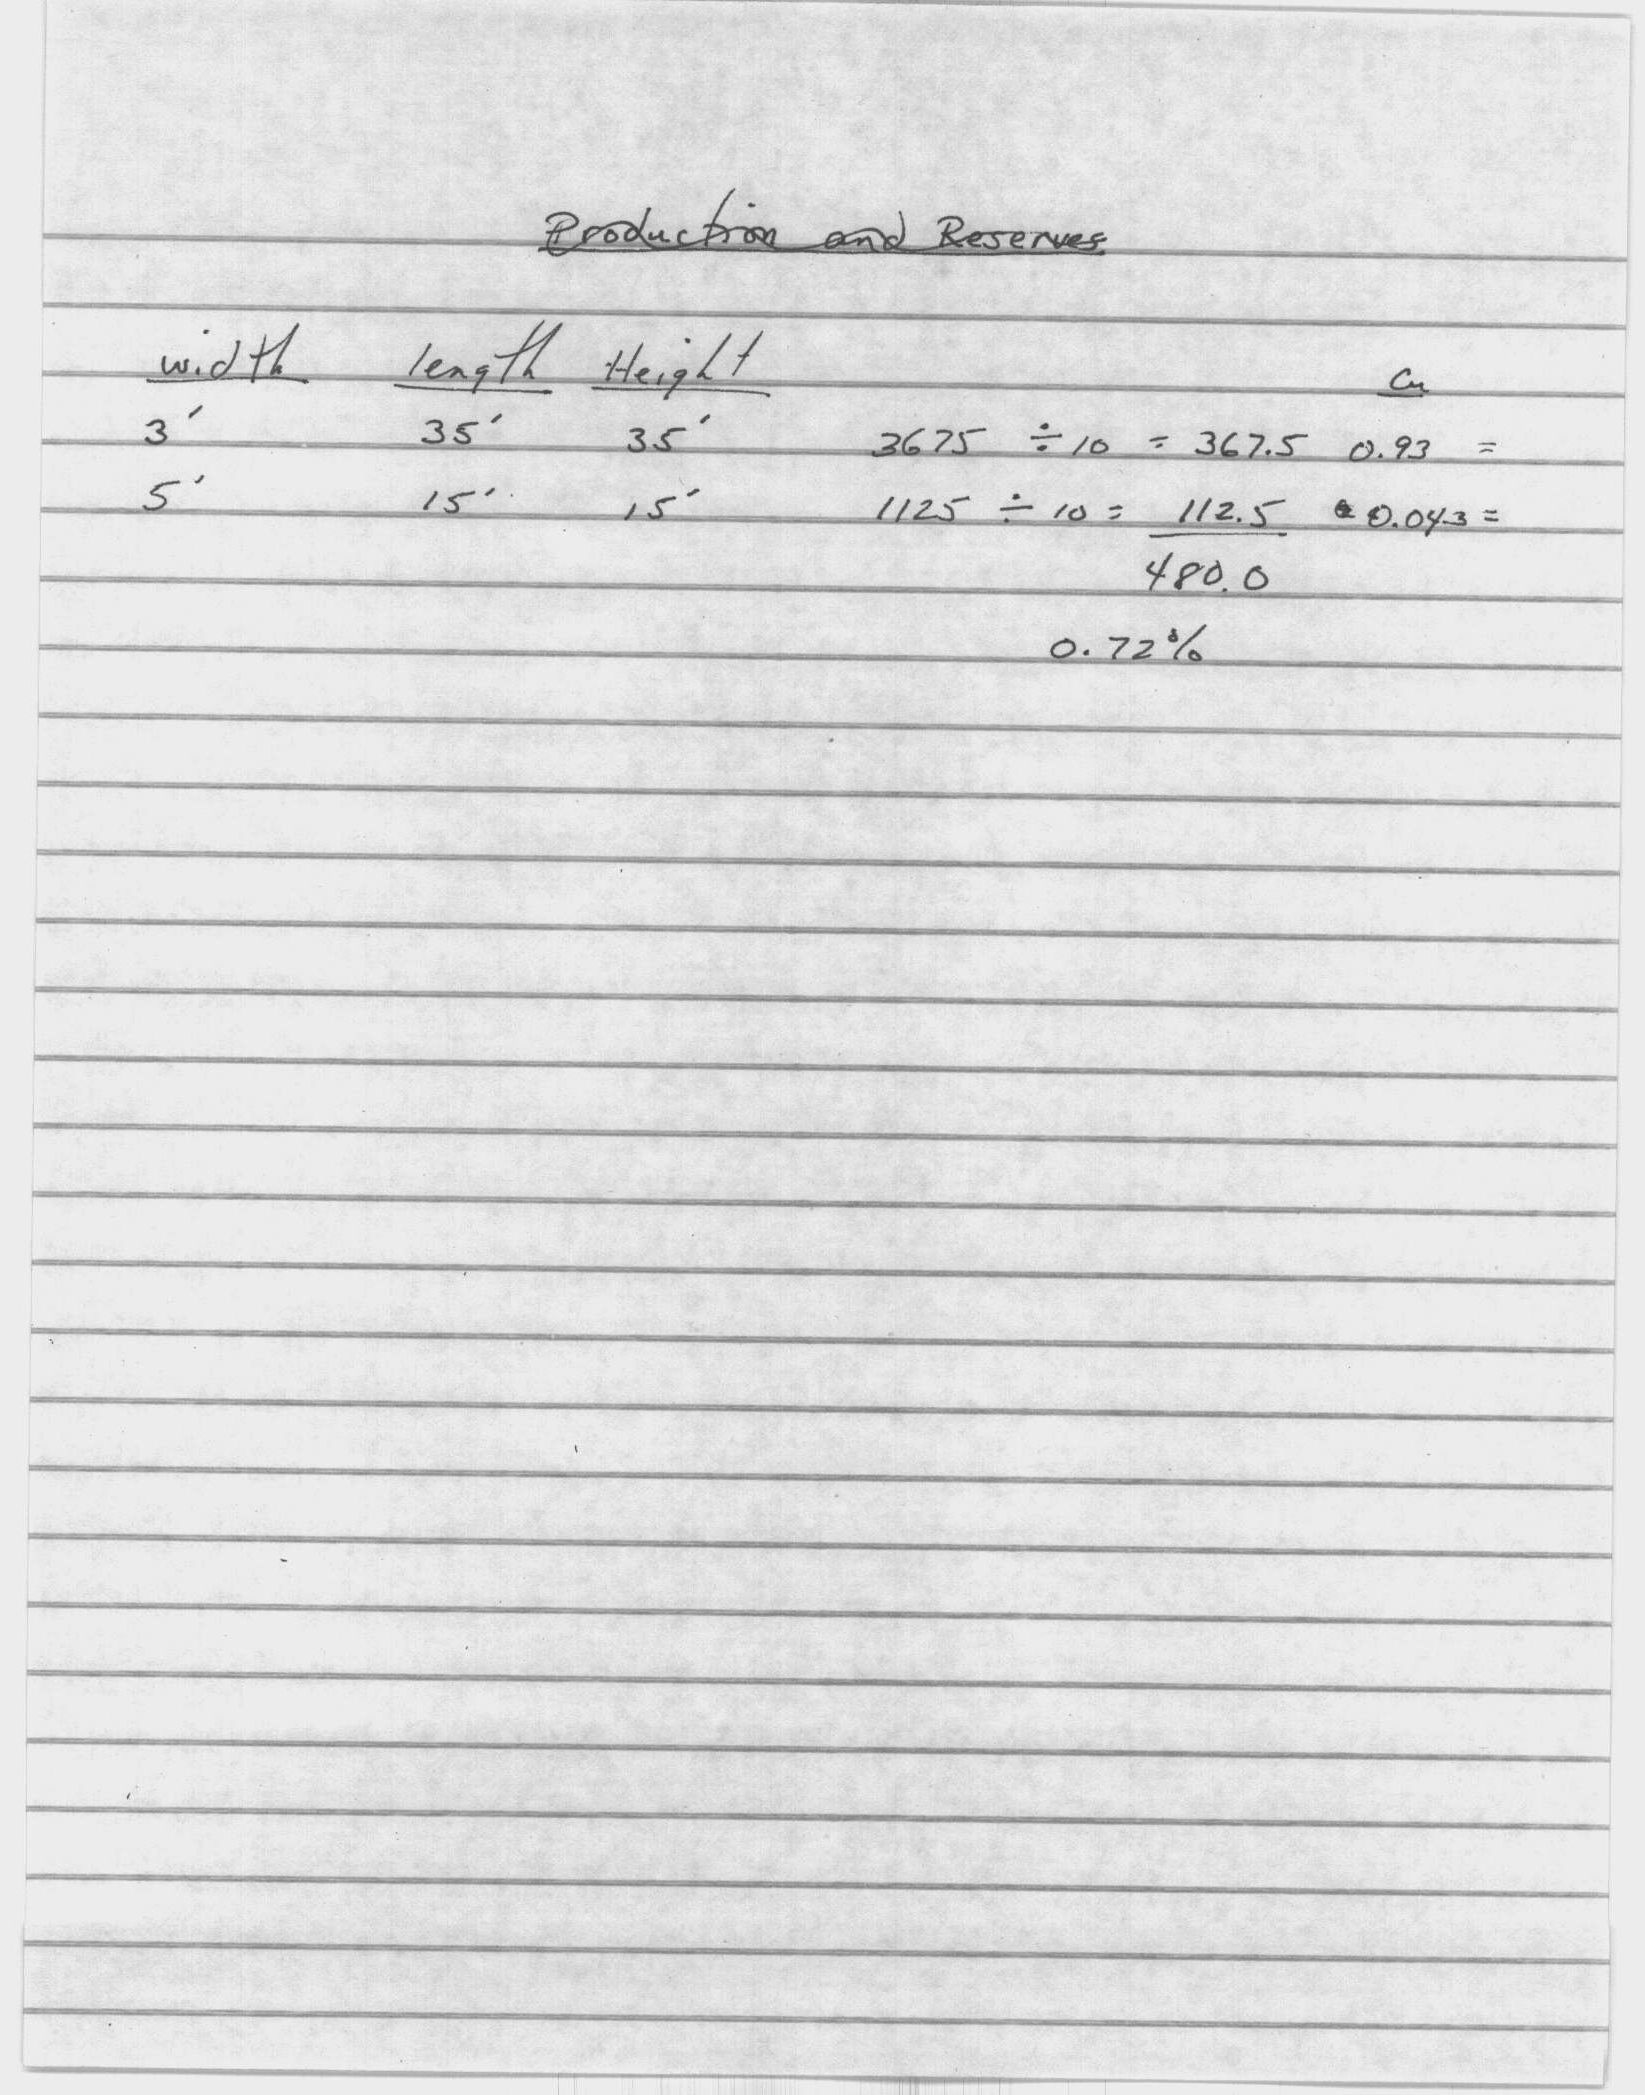 Production and Reserves
width length Height Cu
3' 35' 35' 3675 ÷ 10 = 367.5 0.93 =
5' 15' 15' 1125 ÷ 10 = 112.5 0.043 =
480.0
0.72%